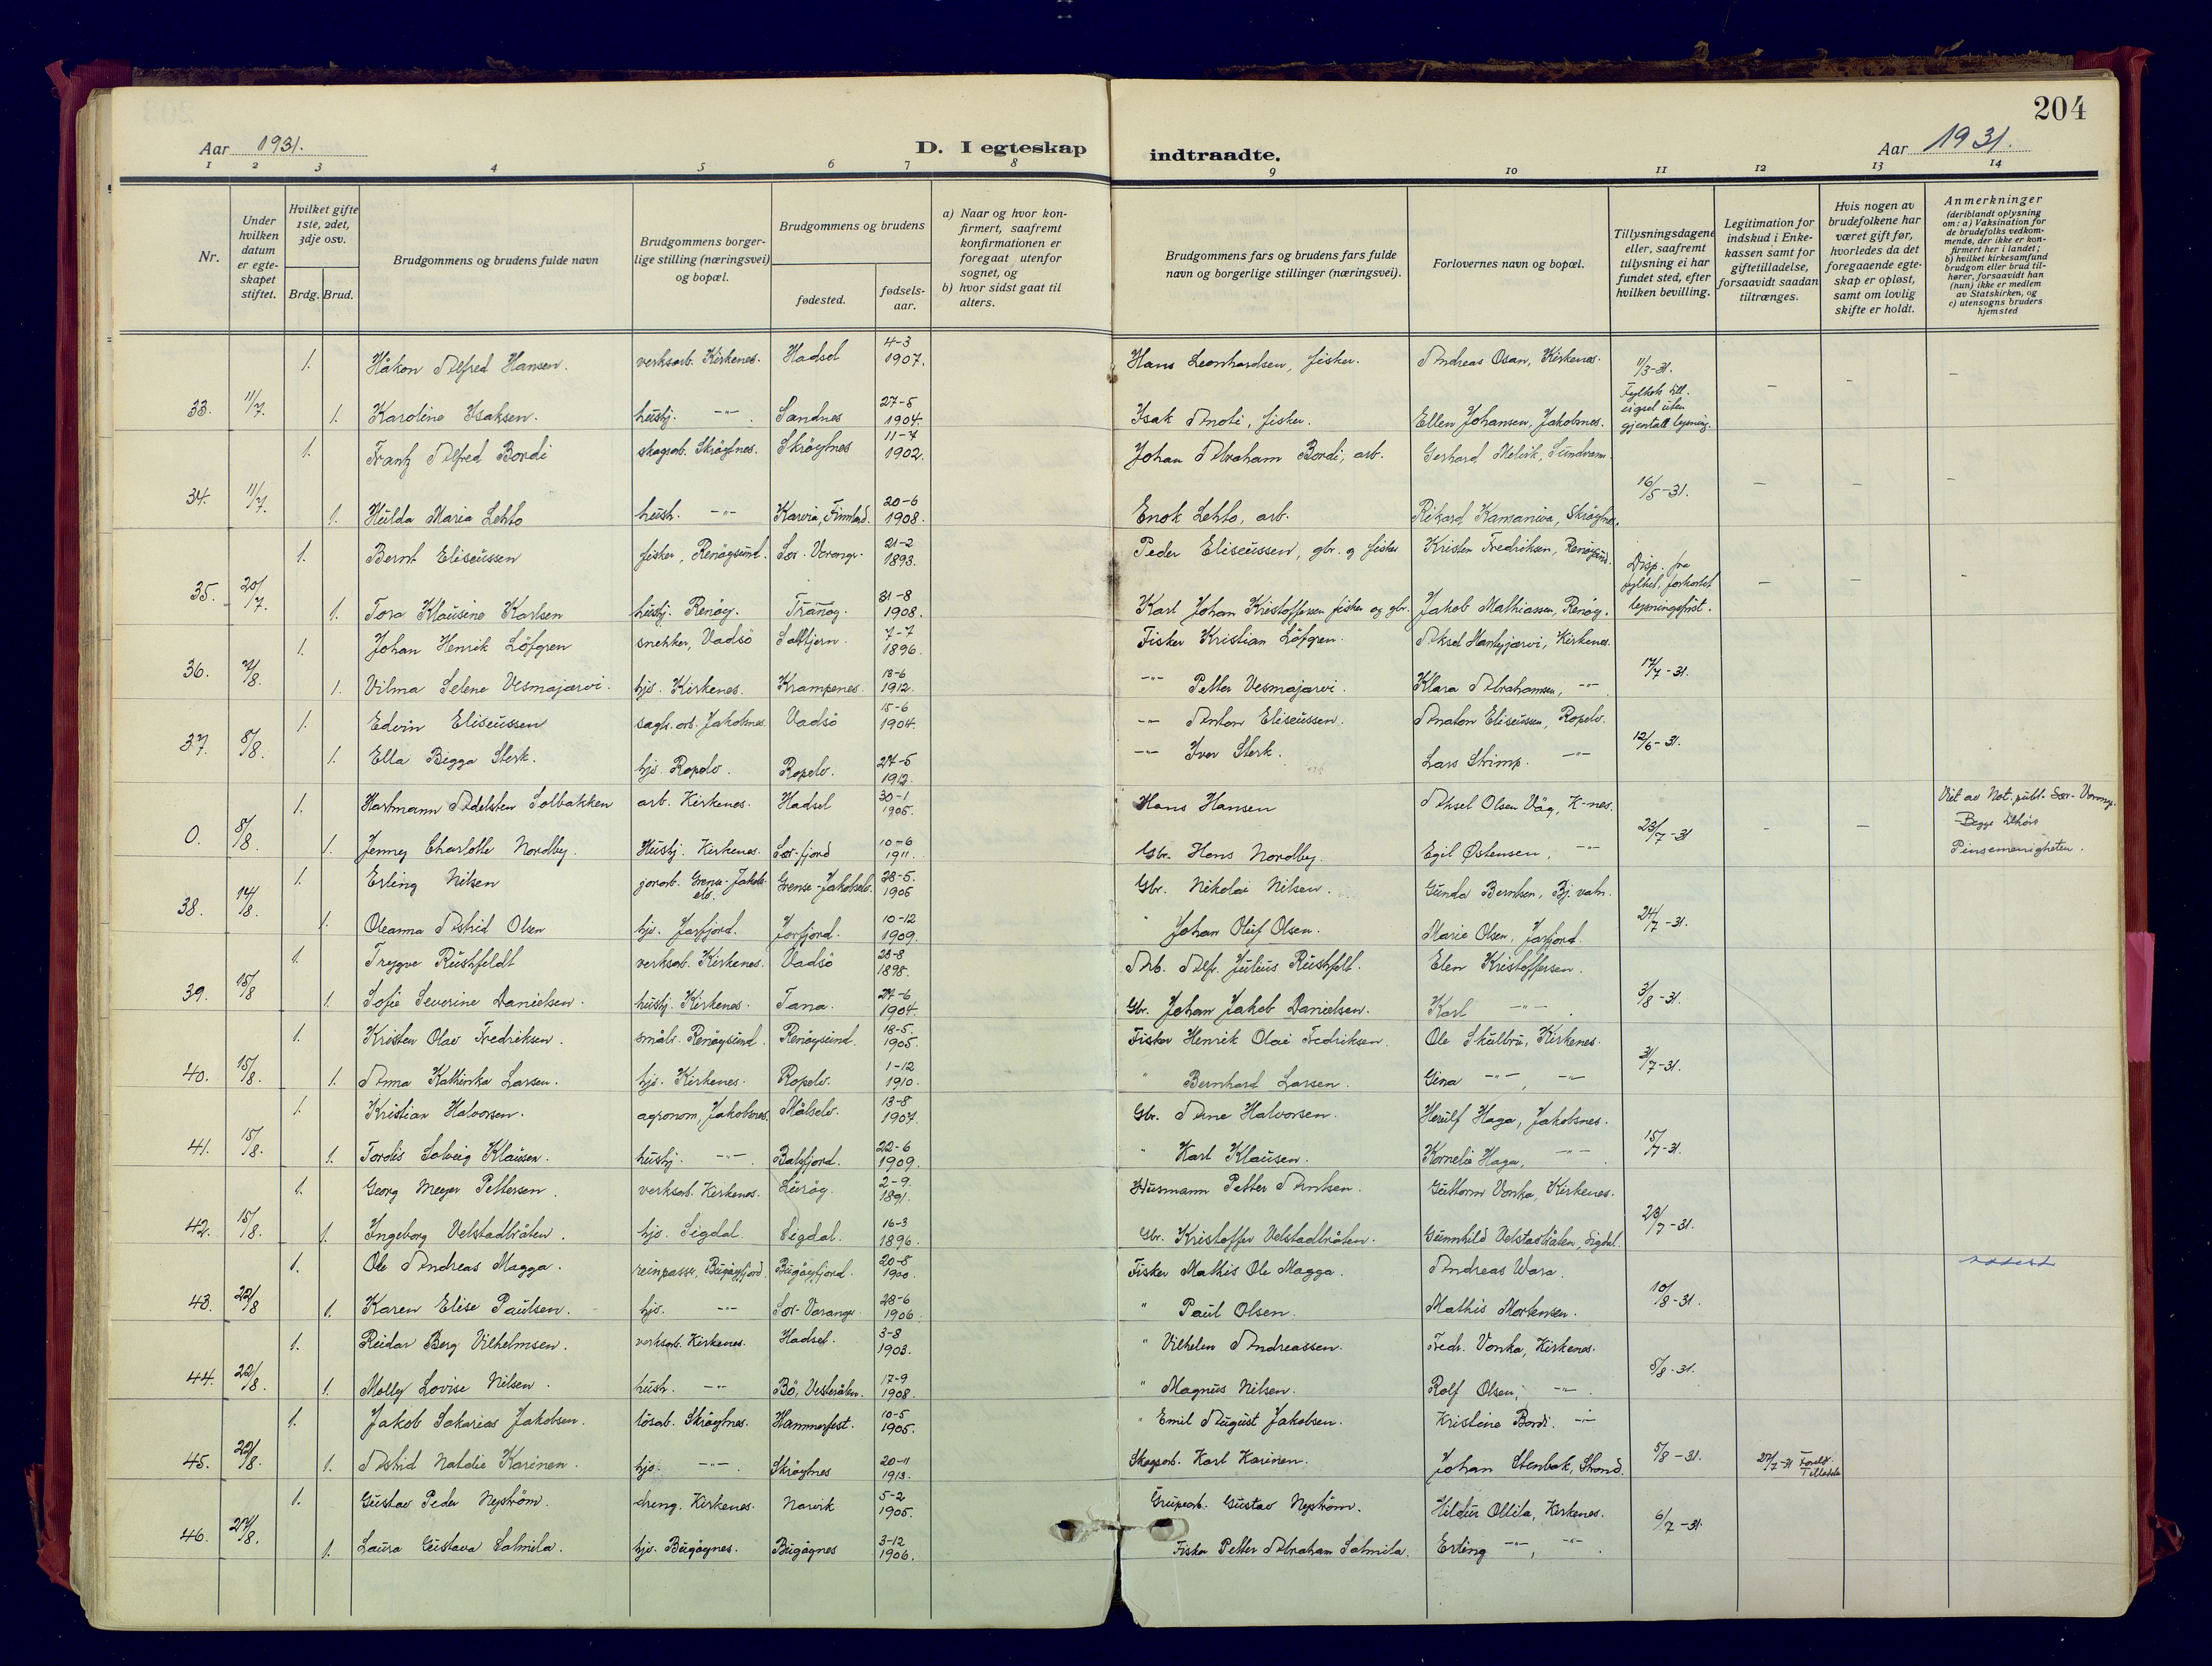 204
Aar 1931.
D. I egteskap indtraadte.
Aar 1931.
1 2 3 4 5 6 7 8 9 10 11 12 13 14
Nr.
Under hvilken datum er egteskapet stiftet.
Hvilket gifte 1ste, 2det, 3dje osv.
Brdg. Brud.
Brudgommens og brudens fulde navn
Brudgommens borgerlige stilling (næringsvei) og bopæl.
Brudgommens og brudens
fødested.
fødselsaar.
a) Naar og hvor konfirmert, saafremt konfirmationen er foregaat utenfor sognet, og
b) hvor sidst gaat til alters.
Brudgommens fars og brudens fars fulde navn og borgerlige stillinger (næringsvei).
Forlovernes navn og bopæl.
Tillysningsdagene eller, saafremt tillysning ei har fundet sted, efter hvilken bevilling.
Legitimation for indskud i Enkekassen samt for giftetilladelse, forsaavidt saadan tiltrænges.
Hvis nogen av brudefolkene har været gift før, hvorledes da det foregaaende egteskap er opløst, samt om lovlig skifte er holdt.
Anmerkninger (deriblandt oplysning om: a) Vaksination for de brudefolks vedkommende, der ikke er konfirmert her i landet; b) hvilket kirkesamfund brudgom eller brud tilhører, forsaavidt han (hun) ikke er medlem av Statskirken, og c) utensogns bruders hjemsted
1. Håkon Alfred Hansen. verksarb. Kirkenes. Hadsel 4-3 1907. Hans Leonhardsen, fisker. Andreas Osan, Kirkenes. 11/3-31.
33. 11/7. 1. Karoline Isaksen. hushj. -"- Sandnes 27-5 1904. Isak Anoti, fisker. Ellen Johansen, Jakobsnes. gjentatt lysning. - - -
1. Frantz Alfred Bordi skogsarb. Skrøytnes. Skrøytnes 11-7 1902. Johan Abraham Bordi, arb. Gerhard Melvik, Sundvann.
34. 11/7. 1. Hulda Maria Lehto hush. -"- Karvia, Finnland. 20-6 1908. Enok Lehto, arb. Rikard Kamaniva, Skrøytnes. 16/5-31. - - -
1. Bernt Eliseussen fisker, Renøysund. Sør-Varange. 21-2 1893. Peder Eliseussen, gbr. og fisker Kristen Fredriksen, Renøysund.
35. 20/7. 1. Tora Klausine Karlsen hushj. Renøy. Tranøy. 31-8 1908. Karl Johan Kristoffersen fisker og gbr. Jakob Mathiassen, Renøy. Disp. fra fylket, forkortet lysningsfrist. - - -
1. Johan Henrik Löfgren snekker, Vadsö Saltfjern. 7-7 1896. Fisker Kristian Löfgren. Aksel Mantyjærvi, Kirkenes.
36. 2/8. 1. Vilma Selene Vesmajærvi. hjv. Kirkenes. Krampenes. 18-6 1912. -"- Petter Vesmajærvi. Klara Abrahamsen, -"- 17/7-31.
1. Edvin Eliseussen sagbr. arb. Jakobsnes. Vadsö 15-6 1904. -"- Anton Eliseussen. Anaton Eliseussen, Ropelv.
37. 8/8. 1. Ella Bigga Sterk. hjv. Ropelv. Ropelv. 27-5 1912. -"- Iver Sterk. Lars Strimp. -"- 12/6-31.
1. Hartmann Adelsten Solbakken arb. Kirkenes. Hadsel 30-1 1905. Hans Hansen Aksel Olsen Våg, K-nes. Viet av Not. publ. Sør-Varang.
0. 8/8. 1. Jenny Charlotte Nordby. Hushj. Kirkenes. Sør-fjord 10-6 1911. Gbr. Hans Nordby. Egil Østensen, -"- 23/7-31 - - Begge tilhøre Pinsemenigheten.
1. Erling Nilsen jordarb. Grense-Jakobselv. Grense-Jakobselv. 28-5. 1905 Gbr. Nikolai Nilsen. Gunda Berntsen, Bj. vatn.
38. 14/8. 1. Oleanna Astrid Olsen hjv. Jarfjord. Jarfjord. 10-12 1909. " Johan Oluf Olsen. Marie Olsen, Jarfjord. 24/7-31.
1. Trygve Rushfeldt verksarb. Kirkenes. Vadsö 23-8 1898. Arb. Alfr. Julius Rushfelt. Elen Kristoffersen.
39. 15/8 1. Sofie Severine Danielsen. hushj. Kirkenes. Tana. 27-6 1904. Gbr. Johan Jakob Danielsen. Karl -"-. 3/8-31.
1. Kristen Olav Fredriksen. småbr. Renøysund. Renøysund. 18-5. 1905. Fisker Henrik Olai Fredriksen. Ole Skulbru, Kirkenes.
40. 15/8. 1. Anna Kathinka Larsen. hjv. Kirkenes. Ropelv. 1-12 1910. " Bernhard Larsen. Gina -"-, -"- 31/7-31.
1. Kristian Halvorsen. agronom, Jakobsnes. Målselv. 13-8 1907. Gbr. Arne Halvorsen. Herulf Haga, Jakobsnes.
41. 15/8. 1. Tordis Solveig Klausen. hushj. -"-. Balsfjord. 22-6 1909. " Karl Klausen. Kornelie Haga, -"-. 15/7-31.
1. Georg Meyer Pettersen. verksarb. Kirkenes. Lurøy. 2-9. 1891. Husmann Petter Arntsen. Guttorm Vonka, Kirkenes.
42. 15/8. 1. Ingeborg Velstadbråten. hjv. Sigdal. Sigdal. 16-3 1896. Gbr. Kristoffer Velstadbråten. Gunnhild Velstadbråten, Sigdal. 23/7-31.
1. Ole Andreas Magga. reinpasser, Bugøyfjord Bugøyfjord. 20-8 1900. Fisker Mathis Ole Magga. Andreas Wara.
43. 22/8 1. Karen Elise Paulsen. hjv. -"- Sør-Varange. 28-6 1906. " Paul Olsen. Mathis Mortensen. 10/8-31.
1. Reidar Berg Vilhelmsen. verksarb. Kirkenes. Hadsel. 3-8 1903. " Vilhelm Andreassen. Fredr. Vonka, Kirkenes.
44. 22/8. 1. Molly Lovise Nilsen. hush. -"- Bö, Vesterålen. 17-9 1908. " Magnus Nilsen. Rolf Olsen, -"-. 5/8-31.
1. Jakob Sakarias Jakobsen. lösarb. Skrøytnes. Hammerfest. 10-5 1905. " Emil August Jakobsen. Kristine Bordi. -"-
45. 22/8. 1. Astrid Natalie Karinen. hjv. -"-. Skrøytnes 20-11 1913. Skogsarb. Karl Karinen. Johan Stenbak, Strand. 5/8-31. 27/7-31
1. Gustav Peder Nyström. dreng. Kirkenes. Narvik 5-2 1905. Grubearb. Gustav Nyström. Hildur Ollila, Kirkenes.
46. 27/8. 1. Laura Gustava Salmila. hjv. Bugøynes. Bugøynes 3-12 1906. Fisker Petter Abraham Salmila. Erling -"-, -"-. 6/7-31.